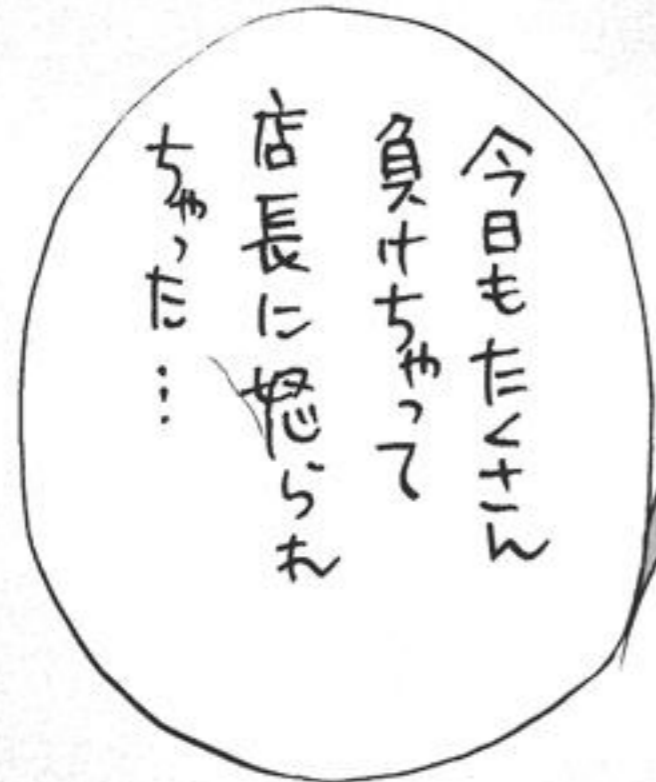 今日もたくさん
負けちゃって
店長に怒られ
ちゃった…